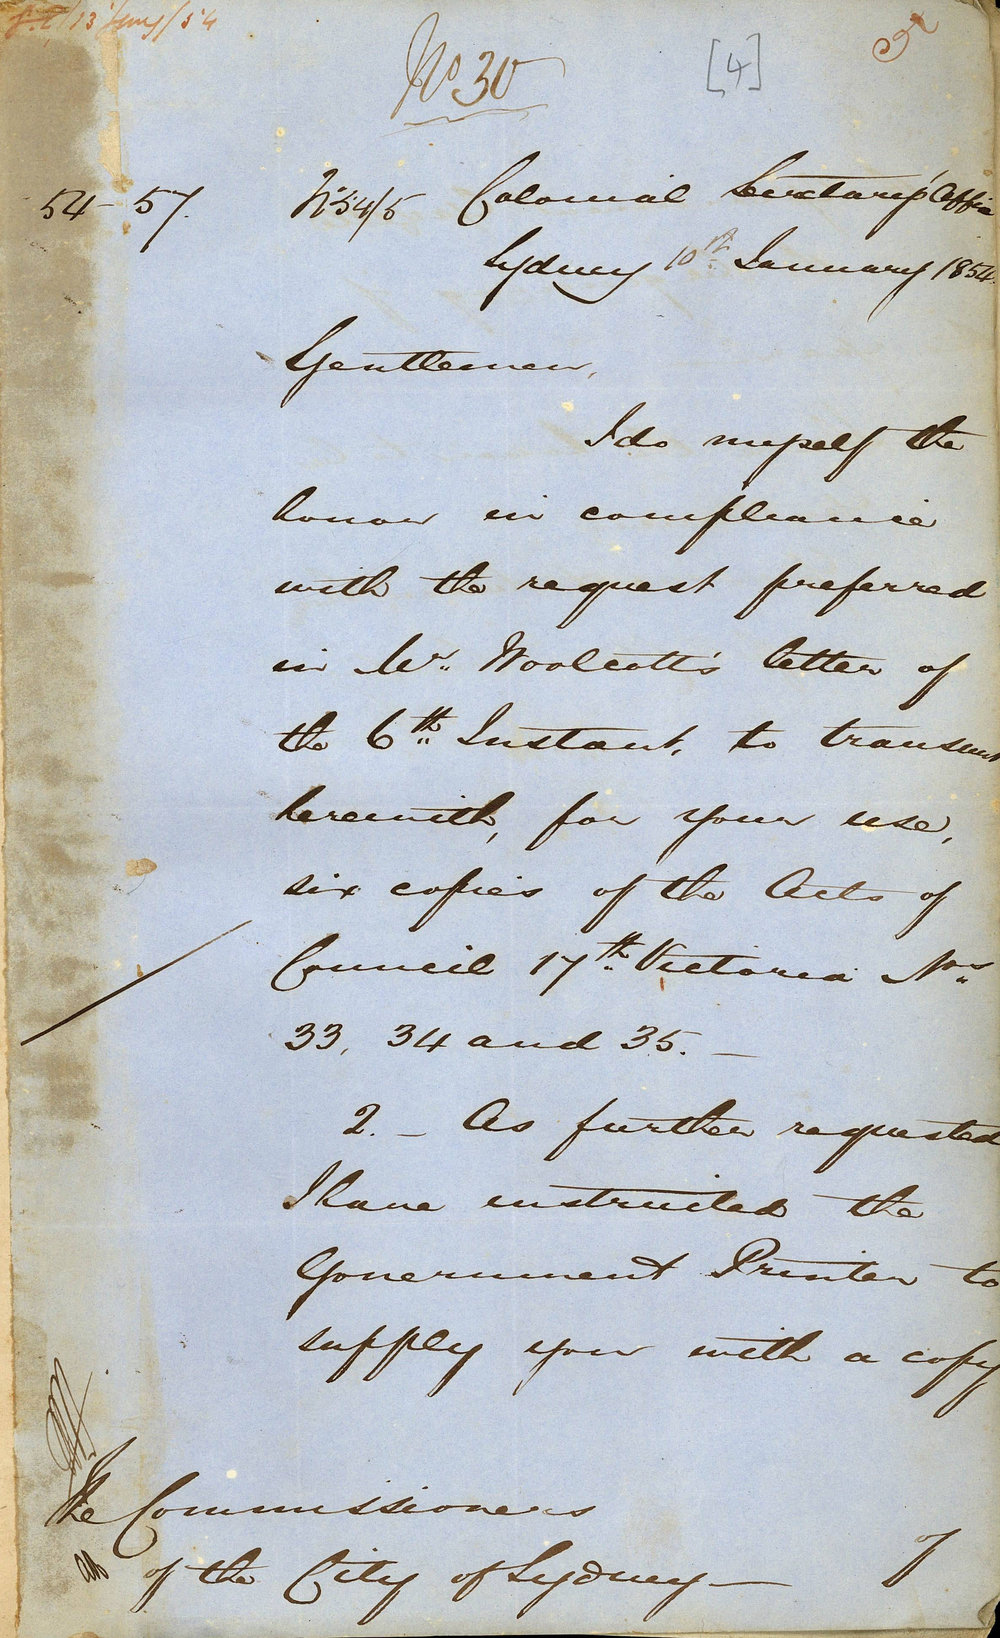 13 Jany/54
No 30
[4]
54-57.
No 54/5 Colonial Secretary's Office
Sydney 10th January 1854.
Gentlemen,
I do myself the
honor in compliance
with the request preferred
in Mr. Woolcott's letter of
the 6th Instant, to transmit
herewith, for your use,
six copies of the Acts of
Council 17th Victoria Nos.
33, 34 and 35. —
2. — As further requested
I have instructed the
Government Printer to
supply you with a copy
The Commissioners
of the City of Sydney —
of